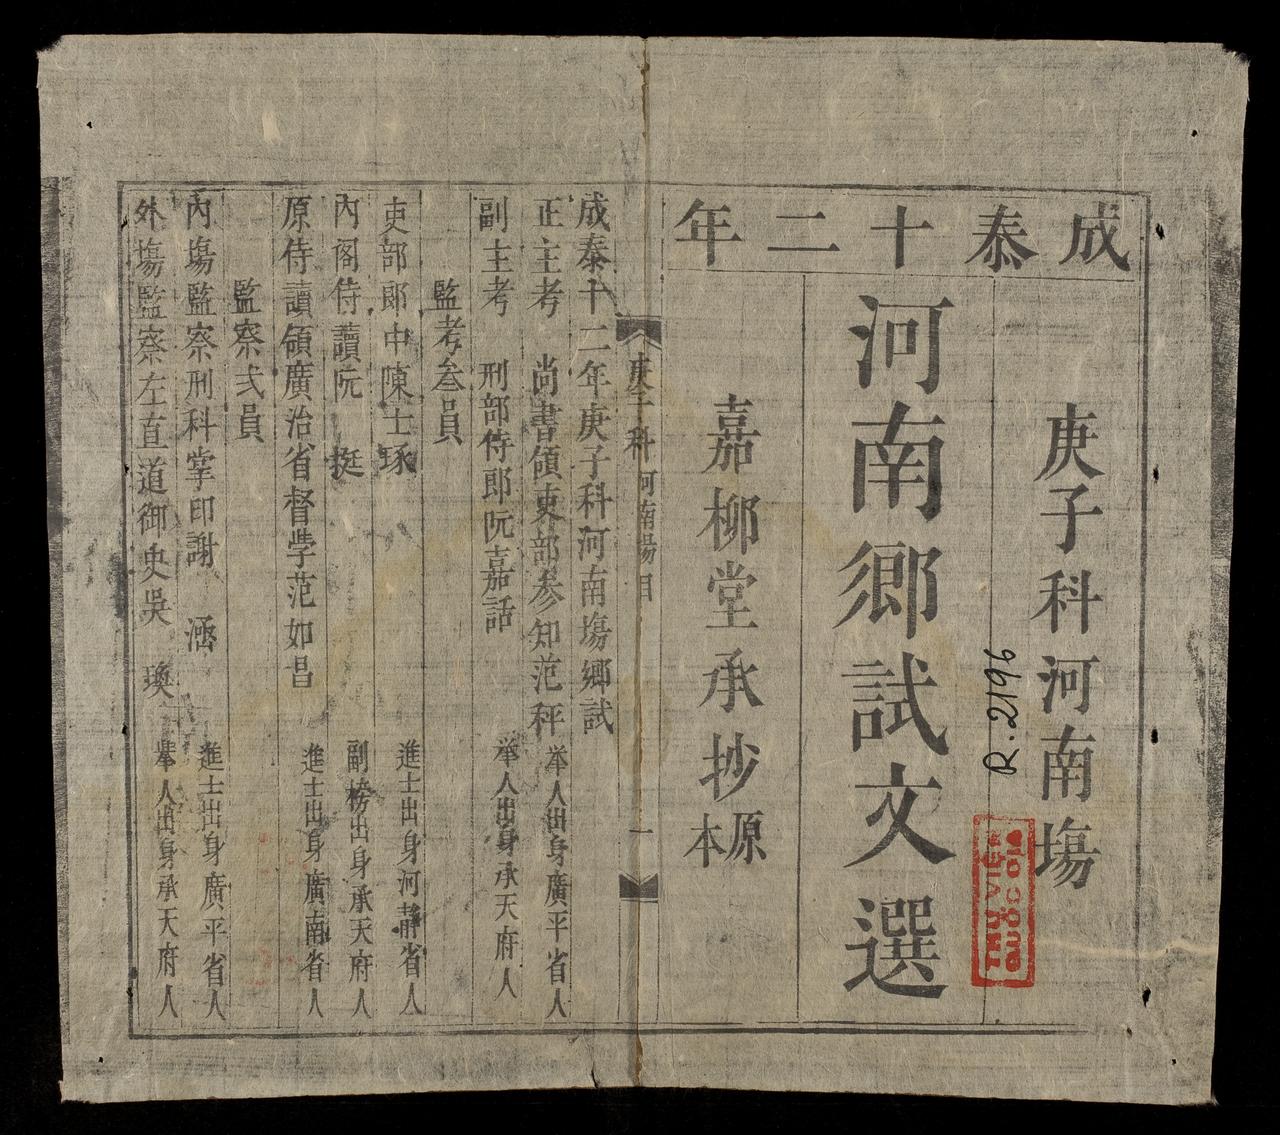 成泰十二年
庚子科河南塲
河南鄉試文選
嘉柳堂承抄原本
R.2196
THƯ VIỆN
QUỐC GIA
庚子科河南塲目
一
成泰十二年庚子科河南塲鄉試
正主考 尚書領吏部参知范秤 举人出身廣平省人
副主考 刑部侍郎阮嘉話 举人出身承天府人
監考叁員
吏部郎中陳士琢 進士出身河靜省人
內閣侍讀阮 挺 副榜出身承天府人
原侍讀領廣治省督學范如昌 進士出身廣南省人
監察弍員
內塲監察刑科掌印謝 涵 進士出身廣平省人
外塲監察左直道御史吳 瓊 举人出身承天府人